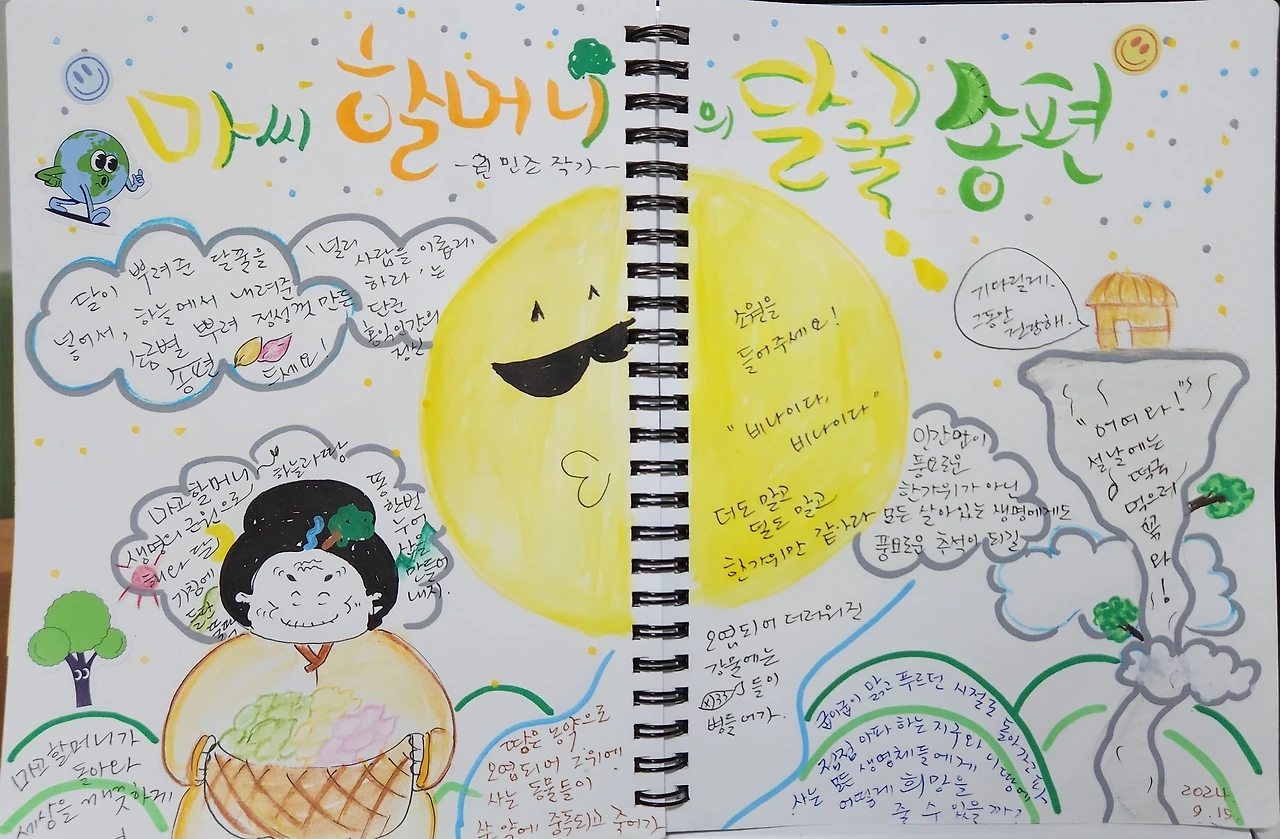 마씨 할머니의 달꿀 송편
민조 작가
달이 뿌려준 달꿀을
넣어서, 하늘에서 내려준
소금별 뿌려 정성껏 만든
송편 드세요!
'널리
사람을 이롭게
하라'는
단군
홍익인간의
정신
소원을
들어주세요!
"비나이다,
비나이다"
더도 말고
덜도 말고
한가위만 같아라
기다릴게.
그동안
건강해.
"어여와!"
설날에는
떡국
먹으러
꼭
와!
인간만이
풍요로운
한가위가 아닌
모든 살아있는 생명에게도
풍요로운 추석이 되길
마고할머니
하늘과 땅
생명의 근원으로
해와 달
똥 한번
누어
산을
만들어
내지.
마고할머니가
돌아와
세상을 깨끗하게
땅은 농약으로
오염되어 그 위에
사는 동물들이
중독되고 죽어가
오염되어 더러워진
강물에는
들이
병들어가.
굽이굽이 맑고 푸르던 시절로 돌아가고파
점점 아파하는 지구와 이 땅에
사는 모든 생명체들에게
어떻게 희망을
줄 수 있을까?
2024.
9.15